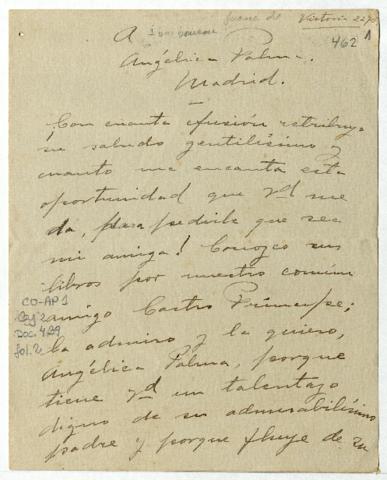 A Ibarbourou Juana de
462 1
Angélica Palma.
Madrid.
¡Con cuanta efusión retribuyo
su saludo gentilísimo y
cuanto me encanta esta
oportunidad que Vd me
da, para pedirle que sea
mi amiga! Conozco sus
libros por nuestro común
amigo Castro
la admiro y la quiero,
Angélica Palma, porque
tiene Vd un talentazo
digno de su admirabilísimo
padre y porque fluye de su
CO-AP1
Caj 2
Doc. 429
fol. 2